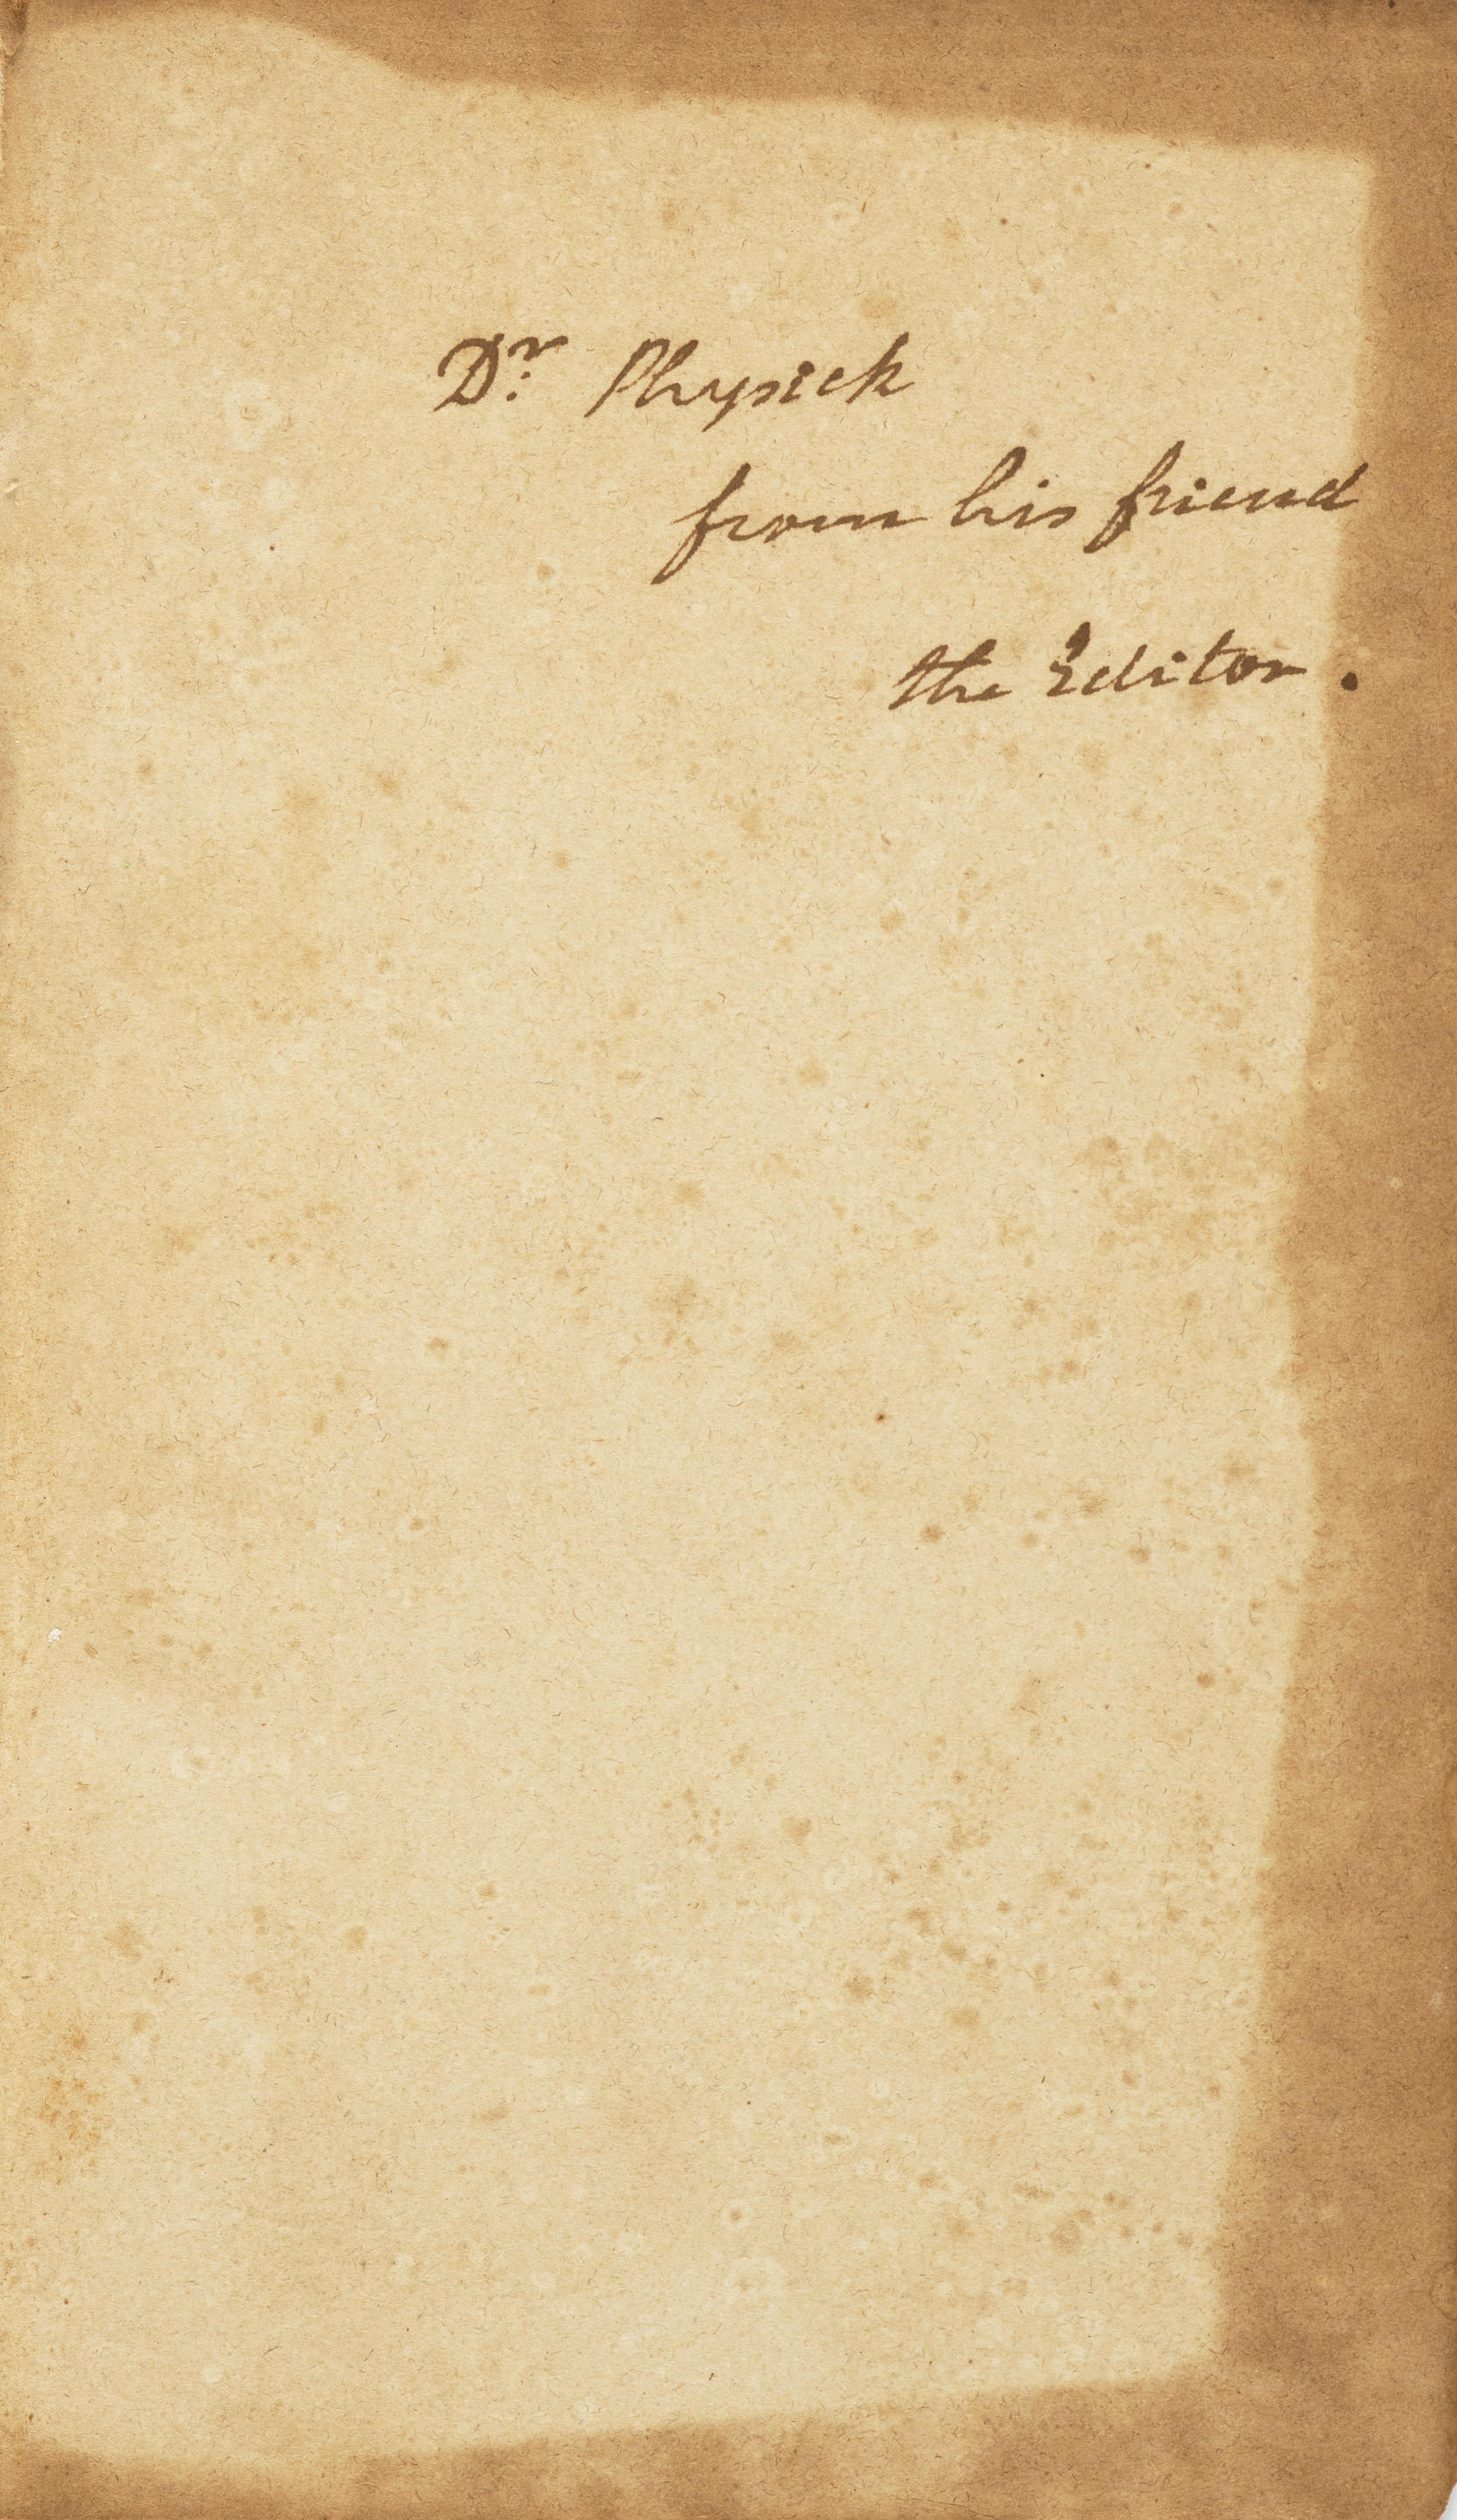 Dr. Physick
from his friend
the Editor.